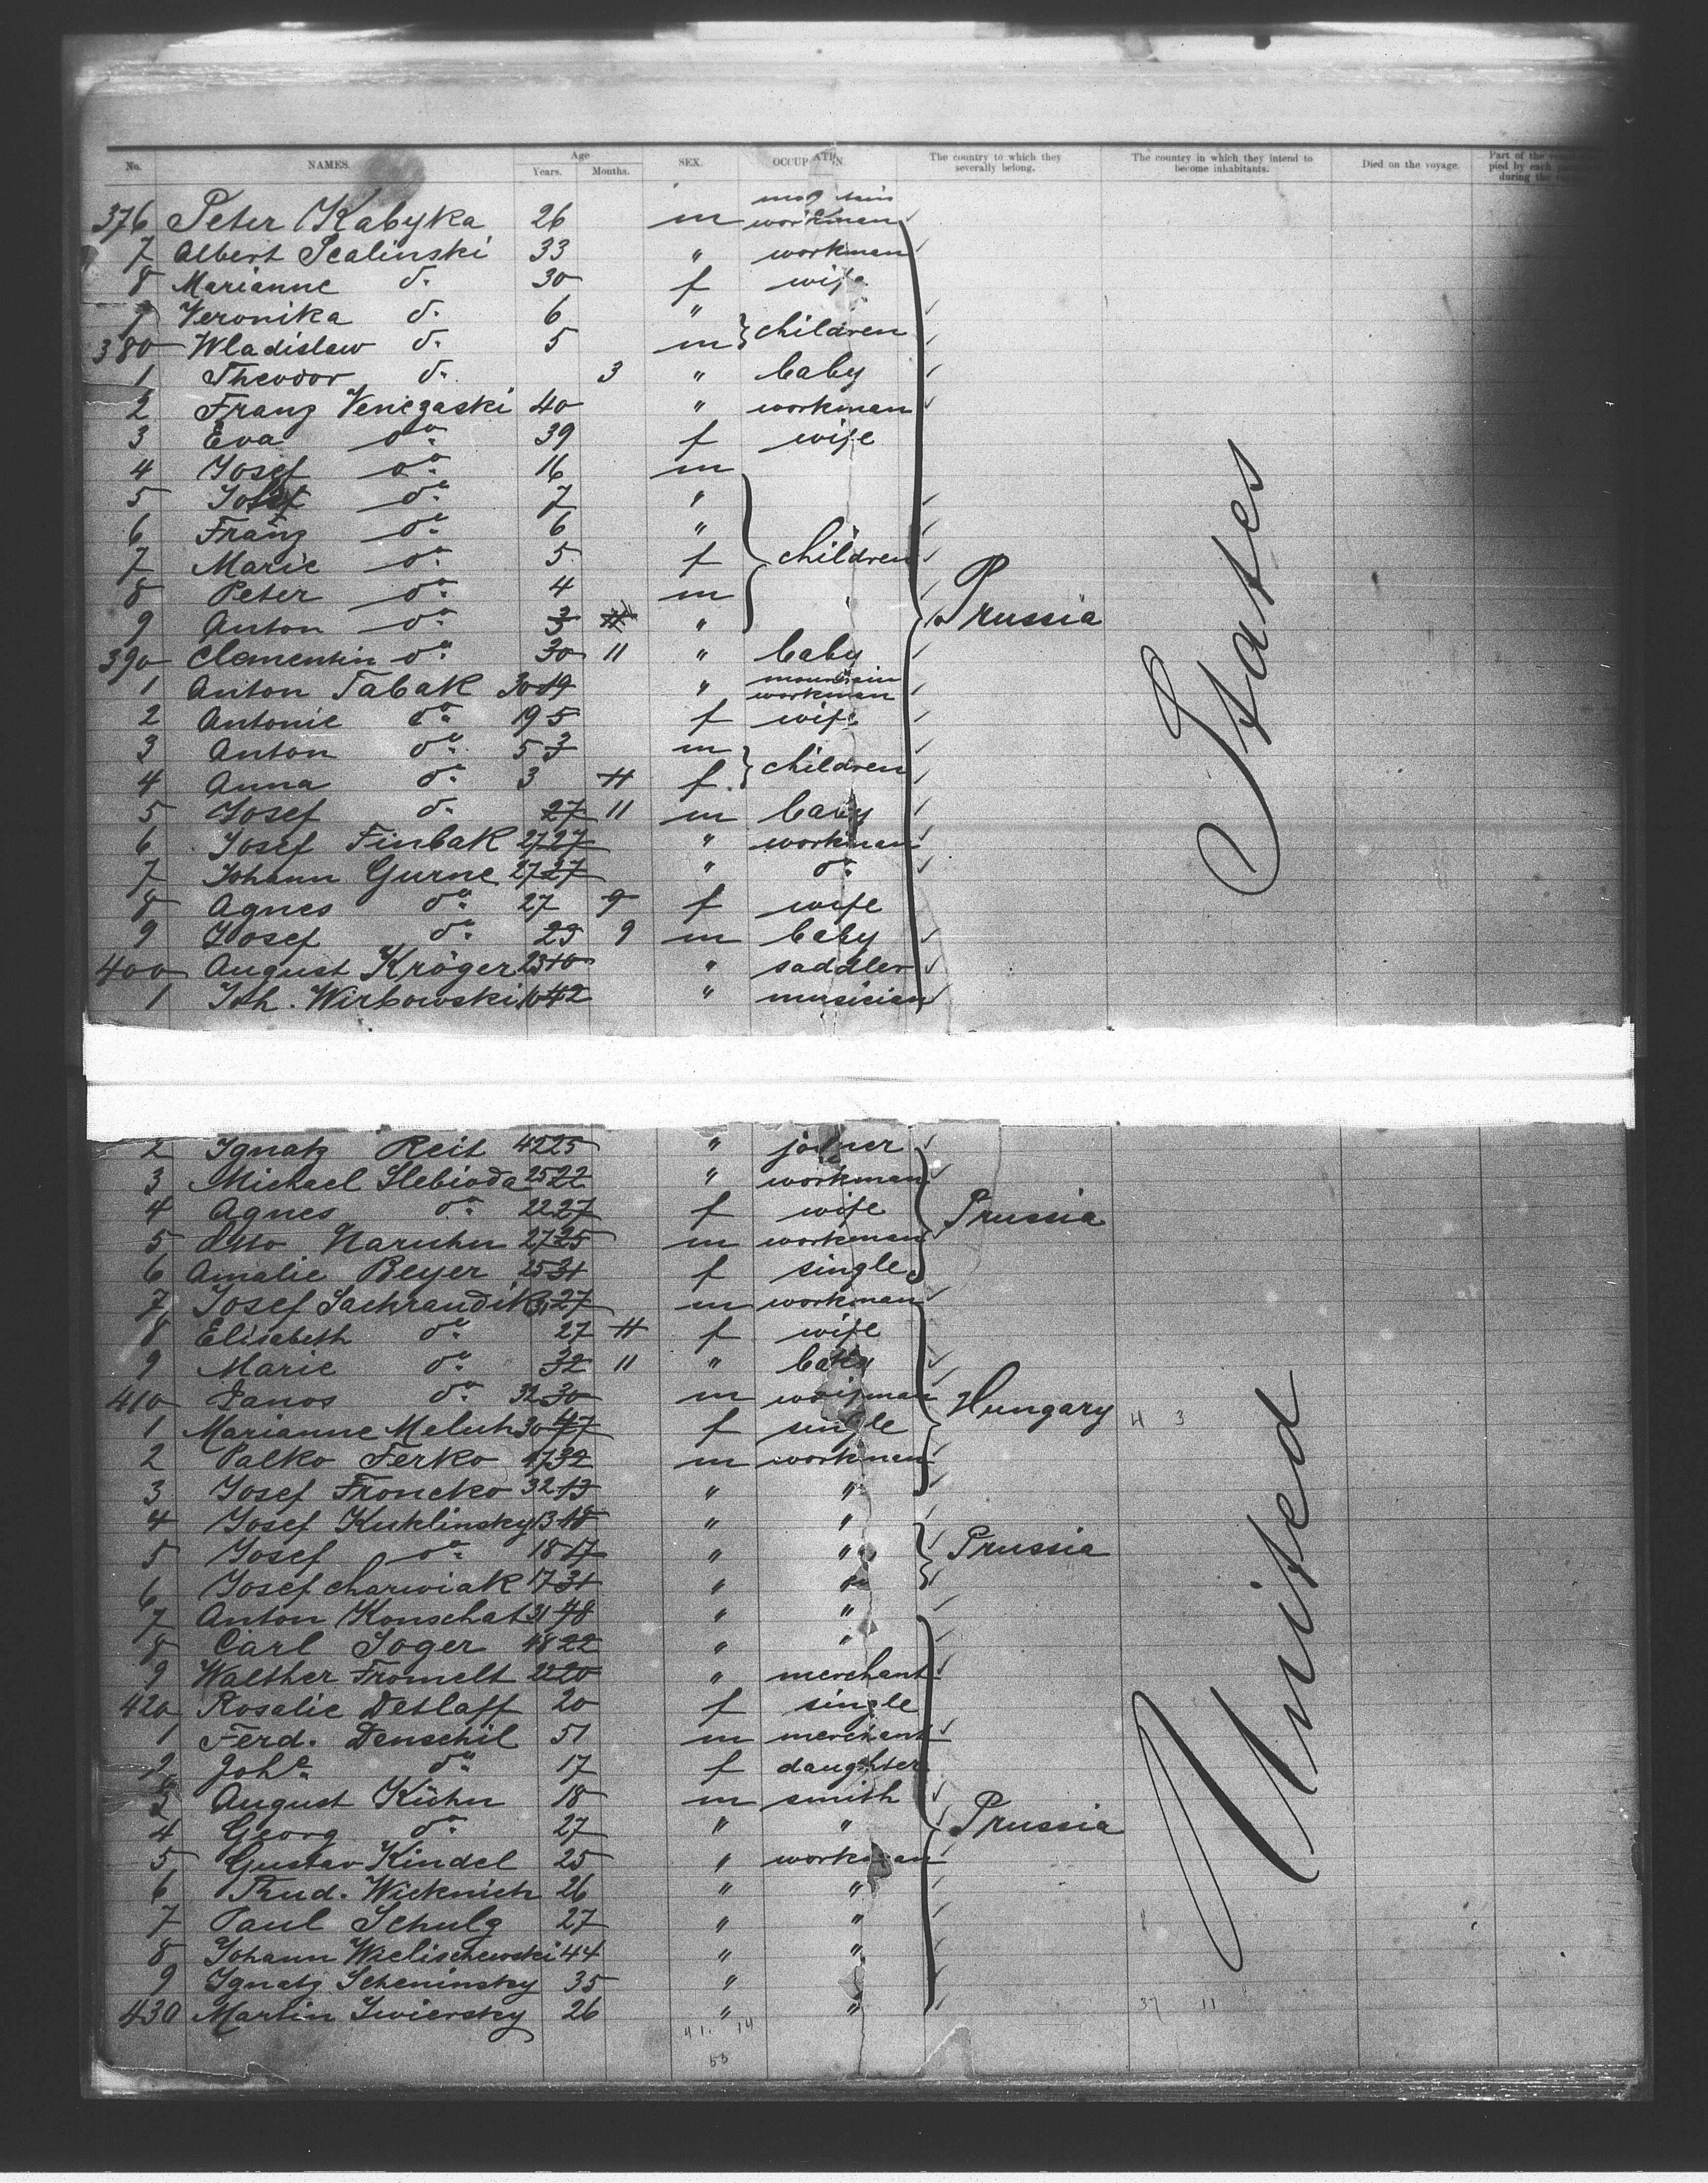 No. NAMES. Age Years. Months. SEX. OCCUPATION. The country to which they severally belong. The country in which they intend to become inhabitants. Died on the voyage. Part of the pied by each during the
376 Peter Kabyka 26 m workman
7 Albert Scalinski 33 " workman
8 Marianne do. 30 f wife
9 Veronika do. 6 " children
380 Wladislaw do. 5 m
1 Theodor do. 3 " baby
2 Franz Venezaski 40 " workman
3 Eva do. 39 f wife
4 Josef do. 16 m
5 Josef do. 7 "
6 Franz do. 6 "
7 Marie do. 5 f children
8 Peter do. 4 m
9 Anton do. 3 11 " Prussia
390 Clementin do. 30 11 " baby
1 Anton Tabak 30 19 " mountain workman
2 Antonie do. 19 5 f wife
3 Anton do. 5 3 m children
4 Anna do. 3 11 f
5 Josef do. 27 11 m baby
6 Josef Finbak 27 27 " workman
7 Johann Gurne 27 27 " do.
8 Agnes do. 27 9 f wife
9 Josef do. 23 9 m baby
400 August Kröger 23 10 " saddler
1 Joh. Wirbowski 10 42 " musician
States
2 Ignatz Reit 42 25 " joiner
3 Michael Slebioda 25 22 " workman
4 Agnes do. 22 27 f wife Prussia
5 Otto Naruhn 27 25 m workman
6 Amalie Beyer 25 31 f single
7 Josef Sachrandik 31 27 m workman
8 Elisabeth do. 27 11 f wife
9 Marie do. 32 11 " baby
410 Janos do. 32 30 m workman Hungary 4 3
1 Marianne Meluh 30 47 f single
2 Palko Ferko 47 32 m workman
3 Josef Froncko 32 13 " "
4 Josef Kuklinsky 13 18 " "
5 Josef do. 18 17 " " Prussia
6 Josef Charwiak 17 31 " "
7 Anton Konschat 31 48 " "
8 Carl Soger 48 22 " "
9 Walther Fromelt 22 20 " merchant
420 Rosalie Detlaff 20 f single
1 Ferd. Denschil 51 m merchant
2 Johe. do. 17 f daughter
3 August Kühn 18 m smith
4 Georg do. 27 " " Prussia
5 Gustav Kindel 25 " workman
6 Rud. Wicknich 26 " "
7 Paul Schulz 27 " "
8 Johann Wielischewski 44 " "
9 Ignatz Scheninsky 35 " "
430 Martin Swiersky 26 " "
United
37 11
41. 14
53